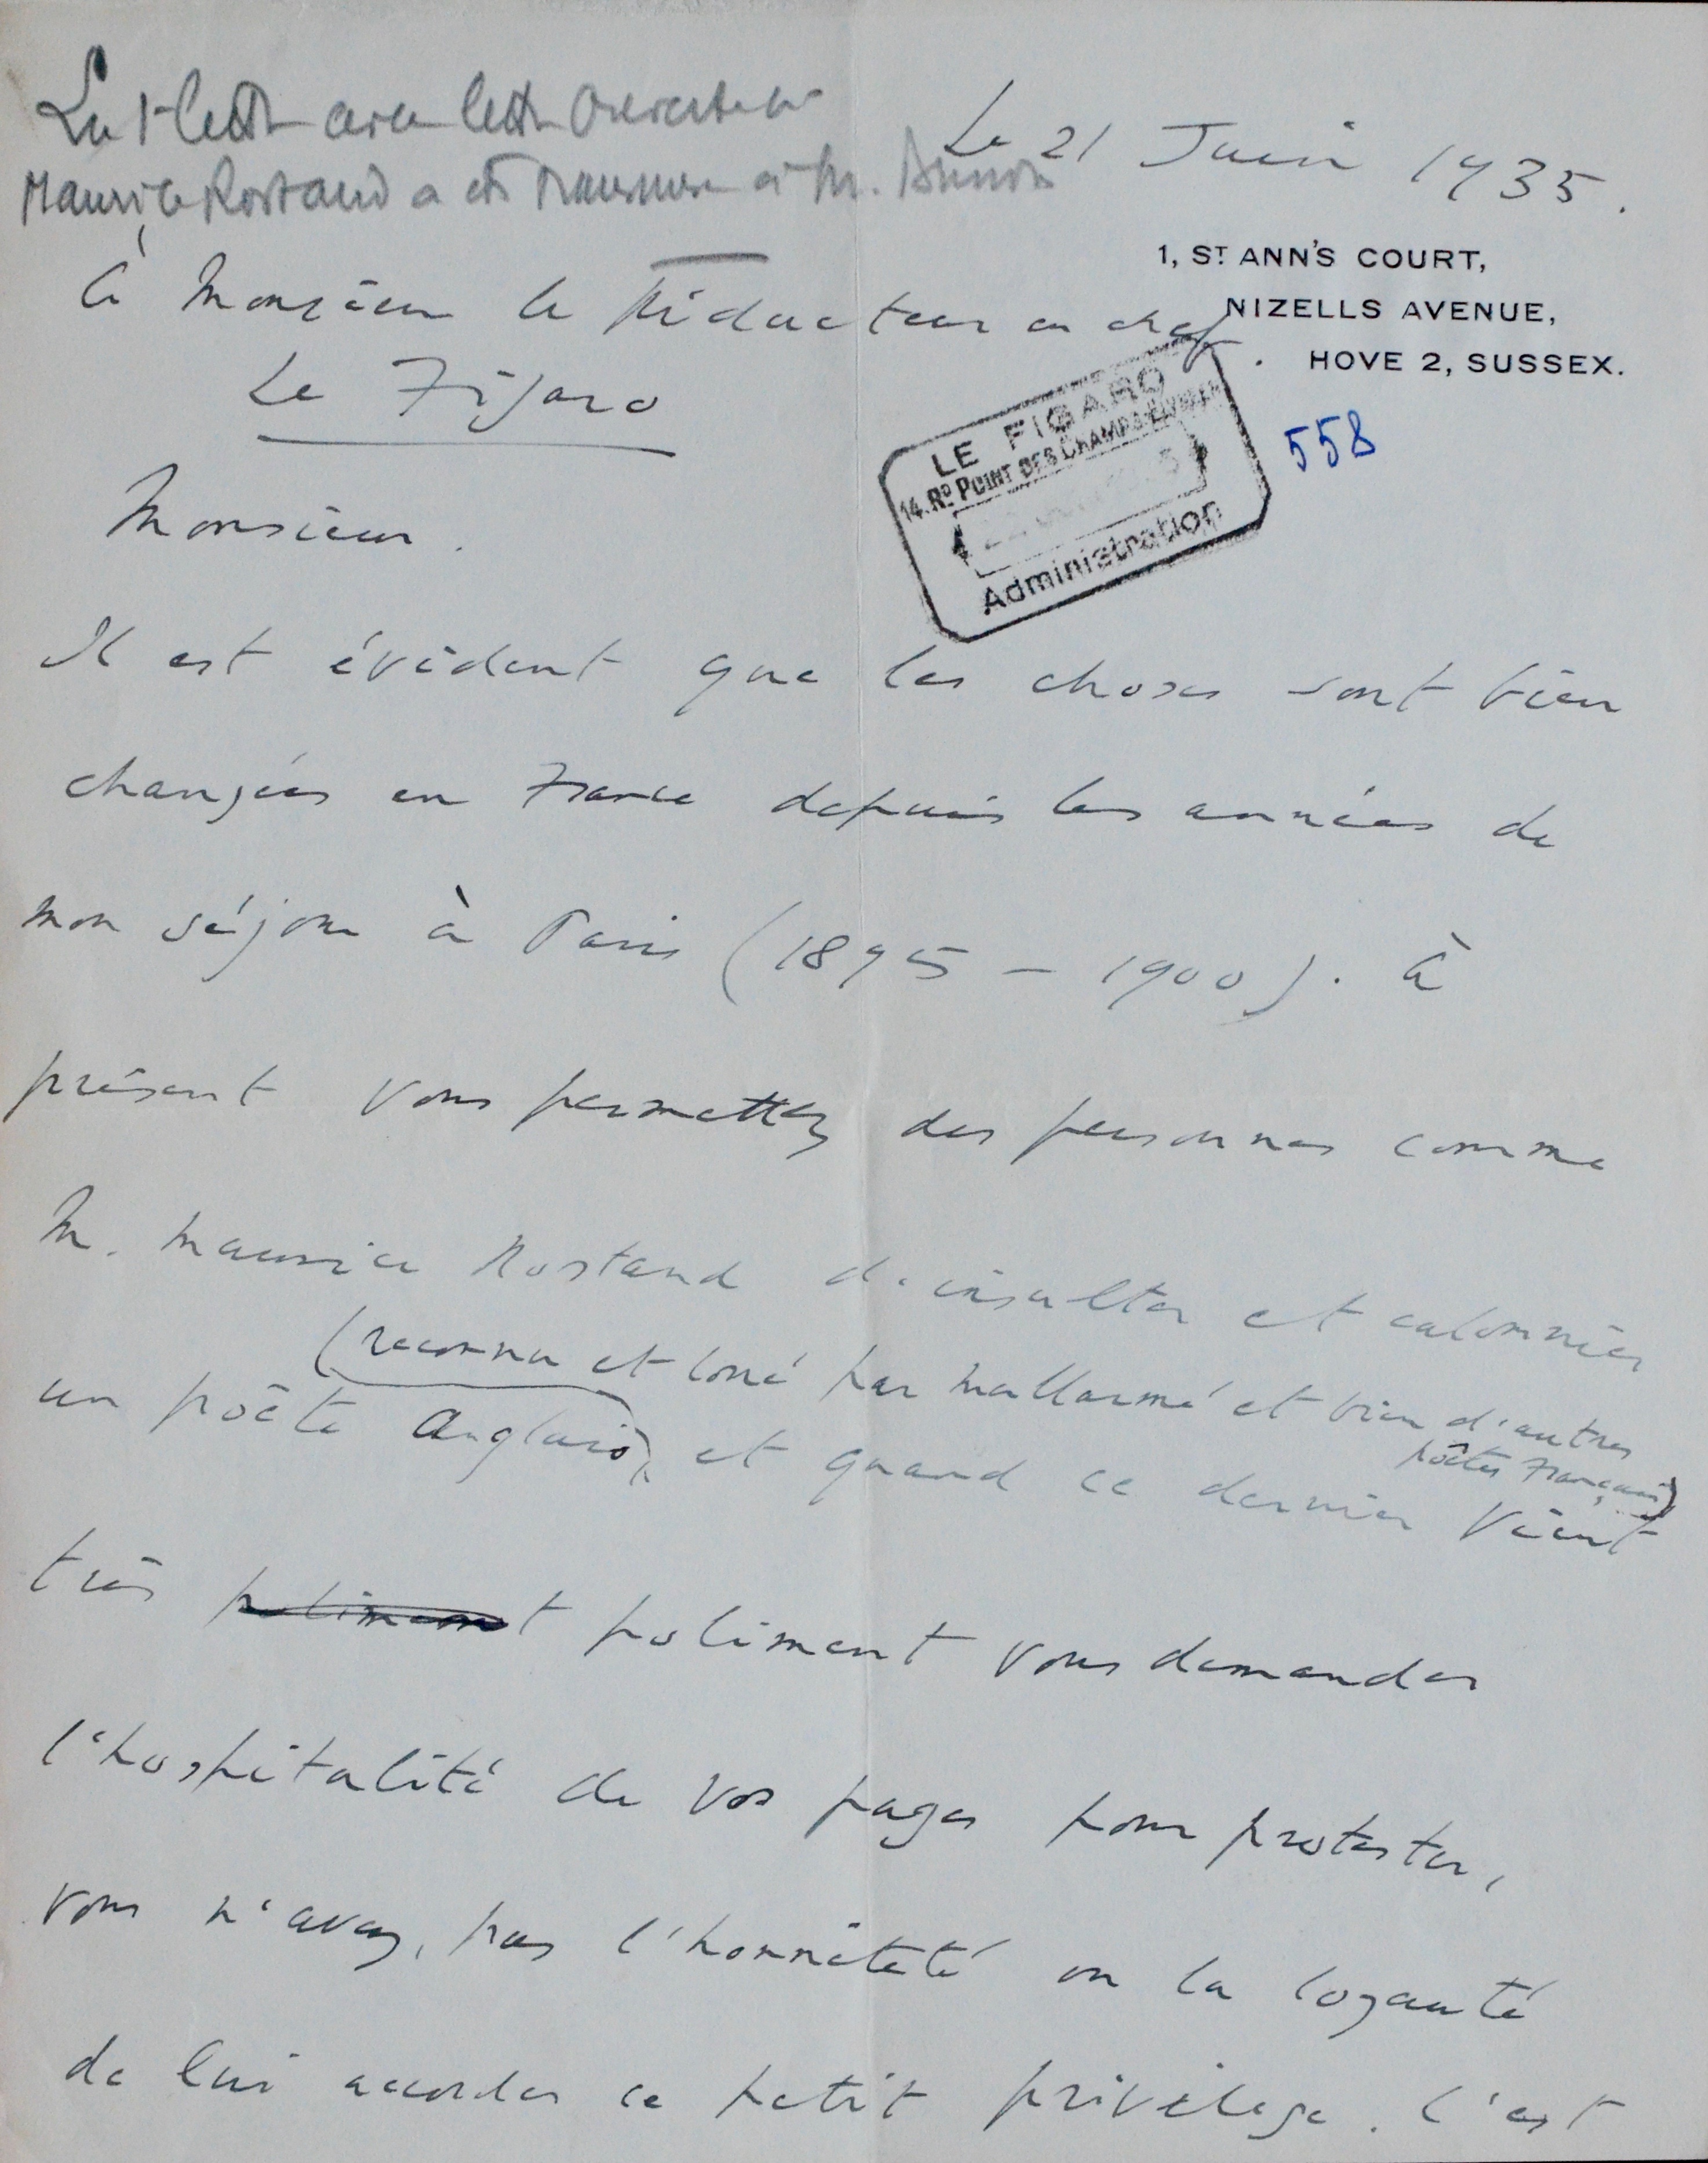 La 1e lettre avec lettre
Maurice Rostand a été transmise à M.
Le 21 Juin 1935.
1, ST ANN'S COURT,
NIZELLS AVENUE,
HOVE 2, SUSSEX.
à Monsieur le Rédacteur en chef.
Le Figaro
LE FIGARO
14. RD POINT DES CHAMPS-ELYSÉES
Administration
558
Monsieur.
Il est évident que les choses sont bien
changées en France depuis les années de
mon séjour à Paris (1895 – 1900). à
présent vous permettez des personnes comme
M. Maurice Rostand d'insulter et calomnier
(reconnu et loué par Mallarmé et bien d'autres
poètes Français)
un poète Anglais, et quand ce dernier vient
très poliment poliment vous demander
l'hospitalité de vos pages pour protester,
vous n'avez, pas l'honnêteté ou la loyauté
de lui accorder ce petit privilège. C'est